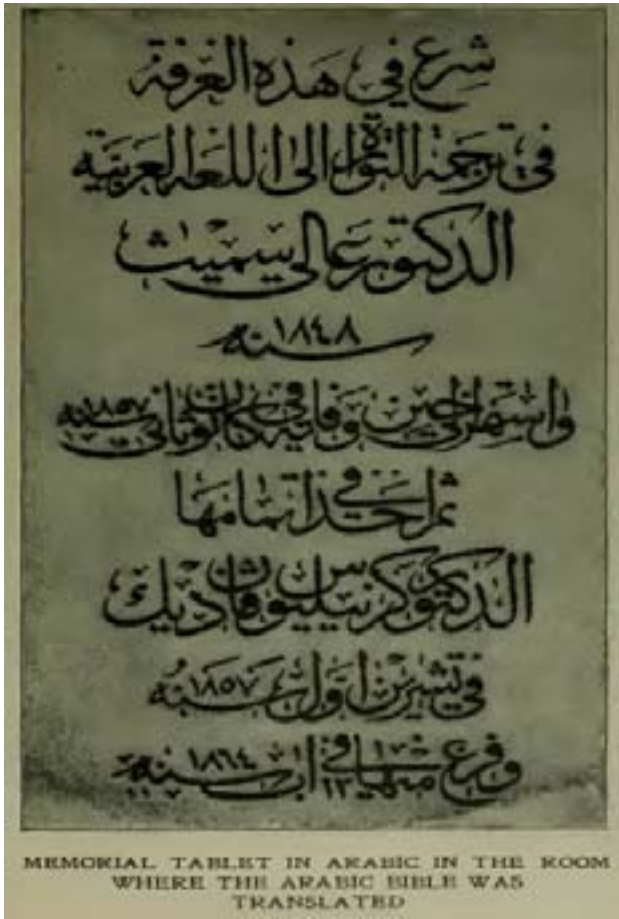 شرع في هذه الغرفة
في ترجمة التوراة الى اللغة العربية
الدكتور عالي سميث
سنة ١٨٤٨
واستمر الى حين وفاته في كانون ثاني سنة ١٨٥٧
ثم اخذ في اتمامها
الدكتور كرنيليوس فان ديك
في تشرين اول سنة ١٨٥٧
وفرغ منها في ٢٢ اب سنة ١٨٦٤
MEMORIAL TABLET IN ARABIC IN THE ROOM
WHERE THE ARABIC BIBLE WAS
TRANSLATED